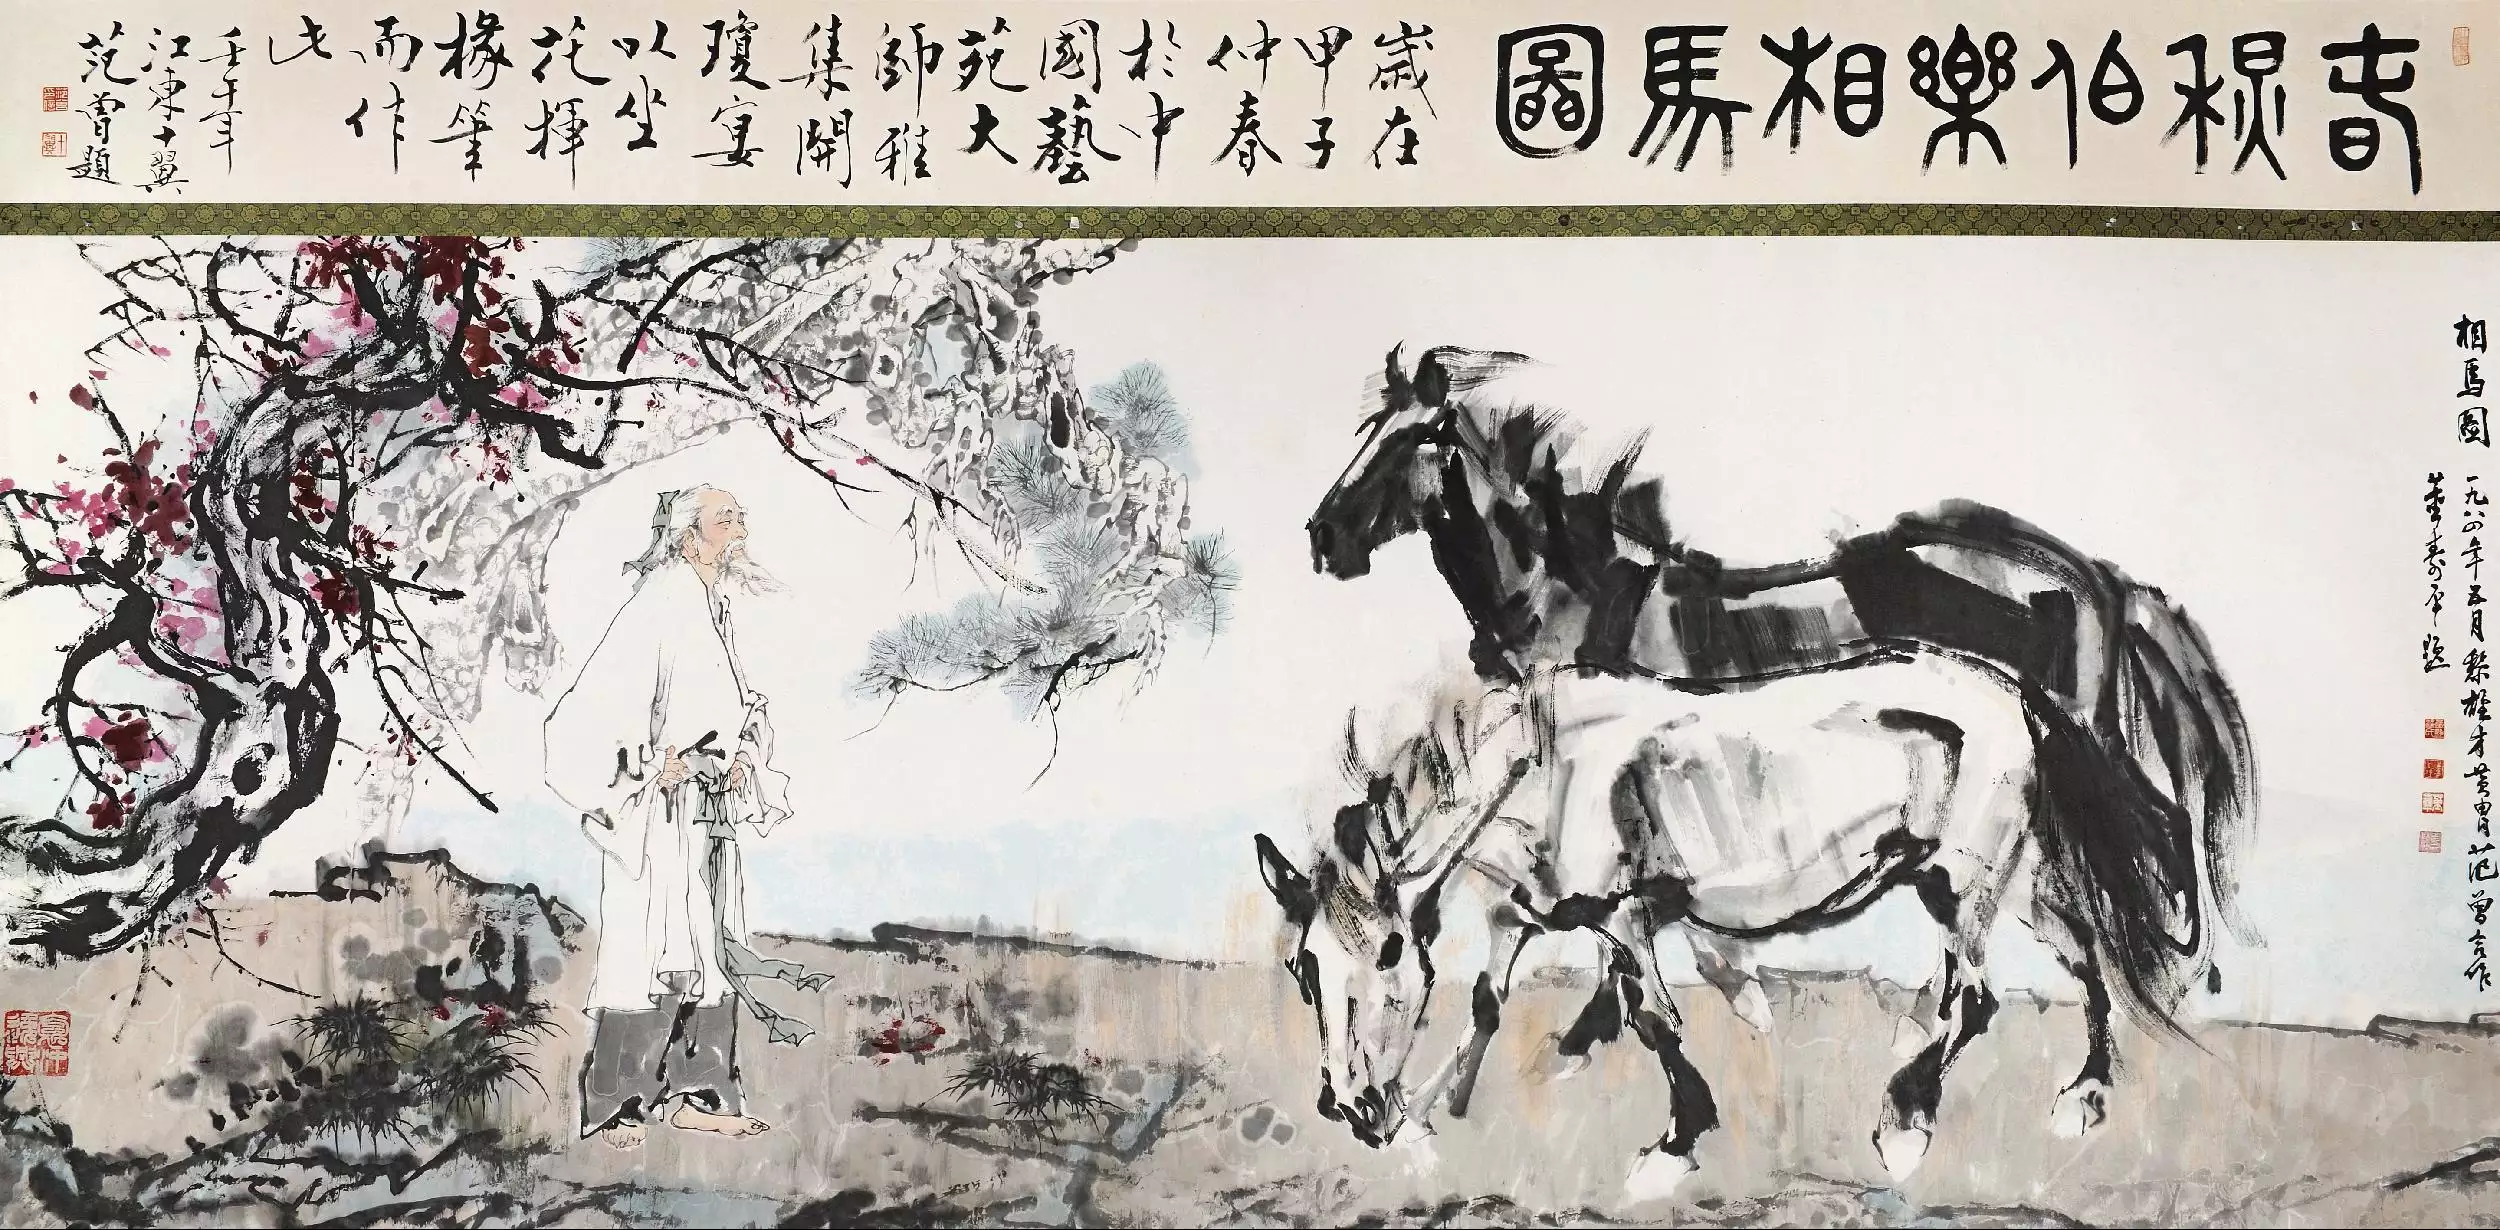 伯樂相馬圖
歲在
甲子
仲春
於中
國藝
苑大
師雅
集開
瓊宴
以坐
花揮
椽筆
而作
此
壬午年
江東十翼
范曾題
相馬圖 一九八四年五月黎雄才黄胄范曾合作
董壽平題